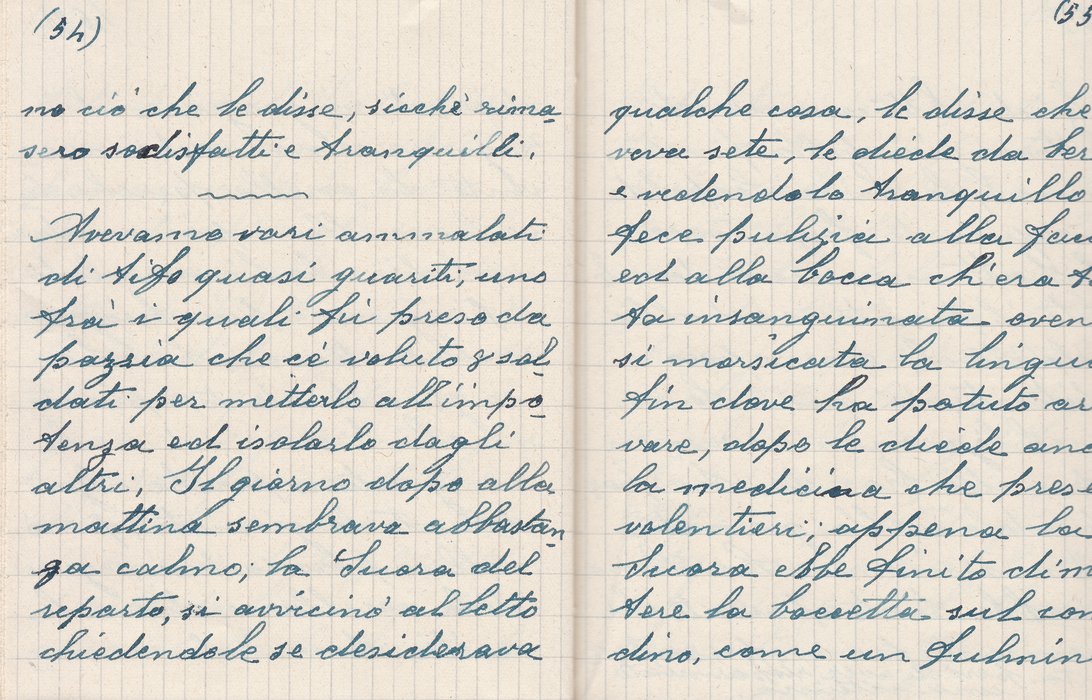 (54)
no ciò che le disse, sicchè rima-
sero sodisfatti e tranquilli.
Avevamo vari ammalati
di tifo quasi guariti, uno
trà i quali fù preso da
pazzia che cè voluto 8 sol-
dati per metterlo all'impo-
tenza ed isolarlo dagli
altri, Il giorno dopo alla
mattina sembrava abbastan-
za calmo; la Suora del
reparto, si avvicinò al letto
chiedendole se desiderava
(55
qualche cosa, le disse che
veva sete, le diede da ber
e vedendolo tranquillo
fece pulizia alla fac
ed alla bocca ch'era t
ta insanguinata aven
si morsicata la lingu
fin dove ha potuto ar
vare, dopo le diede anc
la medicina che prese
volentieri; appena la
Suora ebbe finito di m
tere la boccetta sul com
dino, come un fulmin